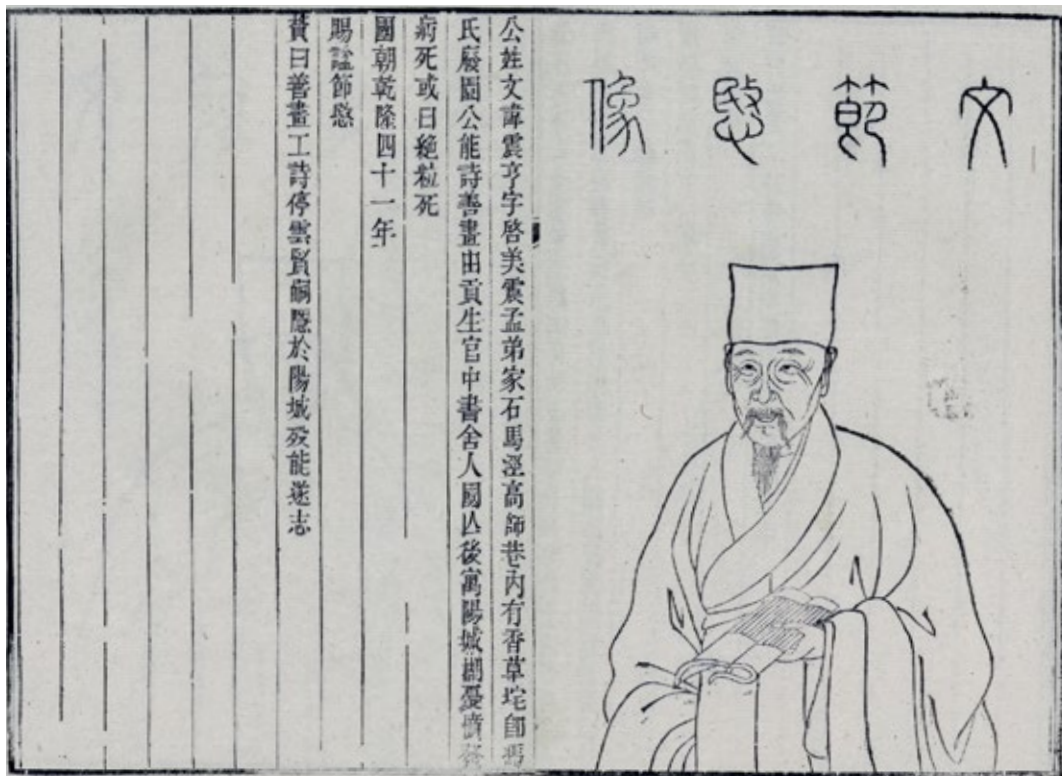 文節愍像
公姓文諱震亨字啓美震孟弟家石馬涇高師巷內有香草垞卽馮
氏廢園公能詩善畫由貢生官中書舍人國亾後寓陽城湖憂憤發
病死或曰絶粒死
國朝乾隆四十一年
賜謚節愍
贊曰善畫工詩停雲賢嗣隱於陽城歿能遂志